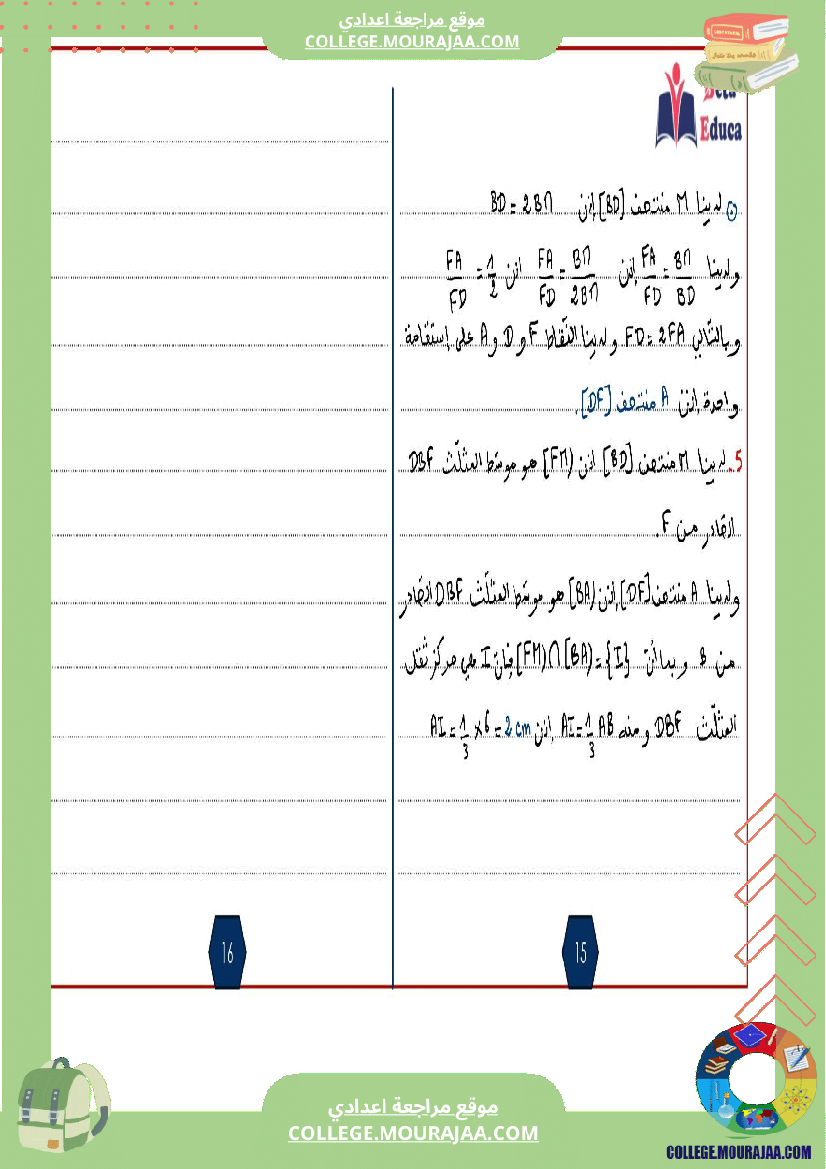 موقع مراجعة اعدادي
COLLEGE.MOURAJAA.COM
Beta
Educa
لدينا M منتصف [BD] إذن BD = 2BM
ولدينا FA/FD = BM/BD إذن FA/FD = BM/2BM اذن FA/FD = 1/2
وبالتّالي FD = 2FA ولدينا النّقاط F و D و A على إستقامة
واحدة إذن A منتصف [DF].
5. لدينا M منتصف [BD] اذن [FM) هو موسّط المثلّث DBF
الصّادر من F.
ولدينا A منتصف [DF] إذن [BA) هو موسّط المثلّث DBF الصّادر
من B وبما أنّ [FM) ∩ [BA) = {I} فإنّ I هي مركز ثقل
المثلّث DBF ومنه AI = 1/3 AB إذن AI = 1/3 × 6 = 2 cm
15
16
موقع مراجعة اعدادي
COLLEGE.MOURAJAA.COM
COLLEGE.MOURAJAA.COM